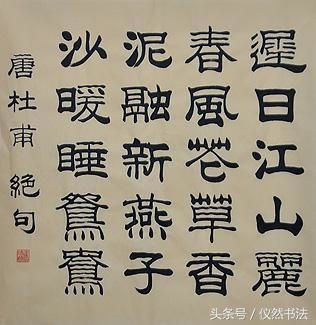 遲日江山麗
春風花草香
泥融新燕子
沙暖睡鴛鴦
唐杜甫絕句
头条号/仪然书法